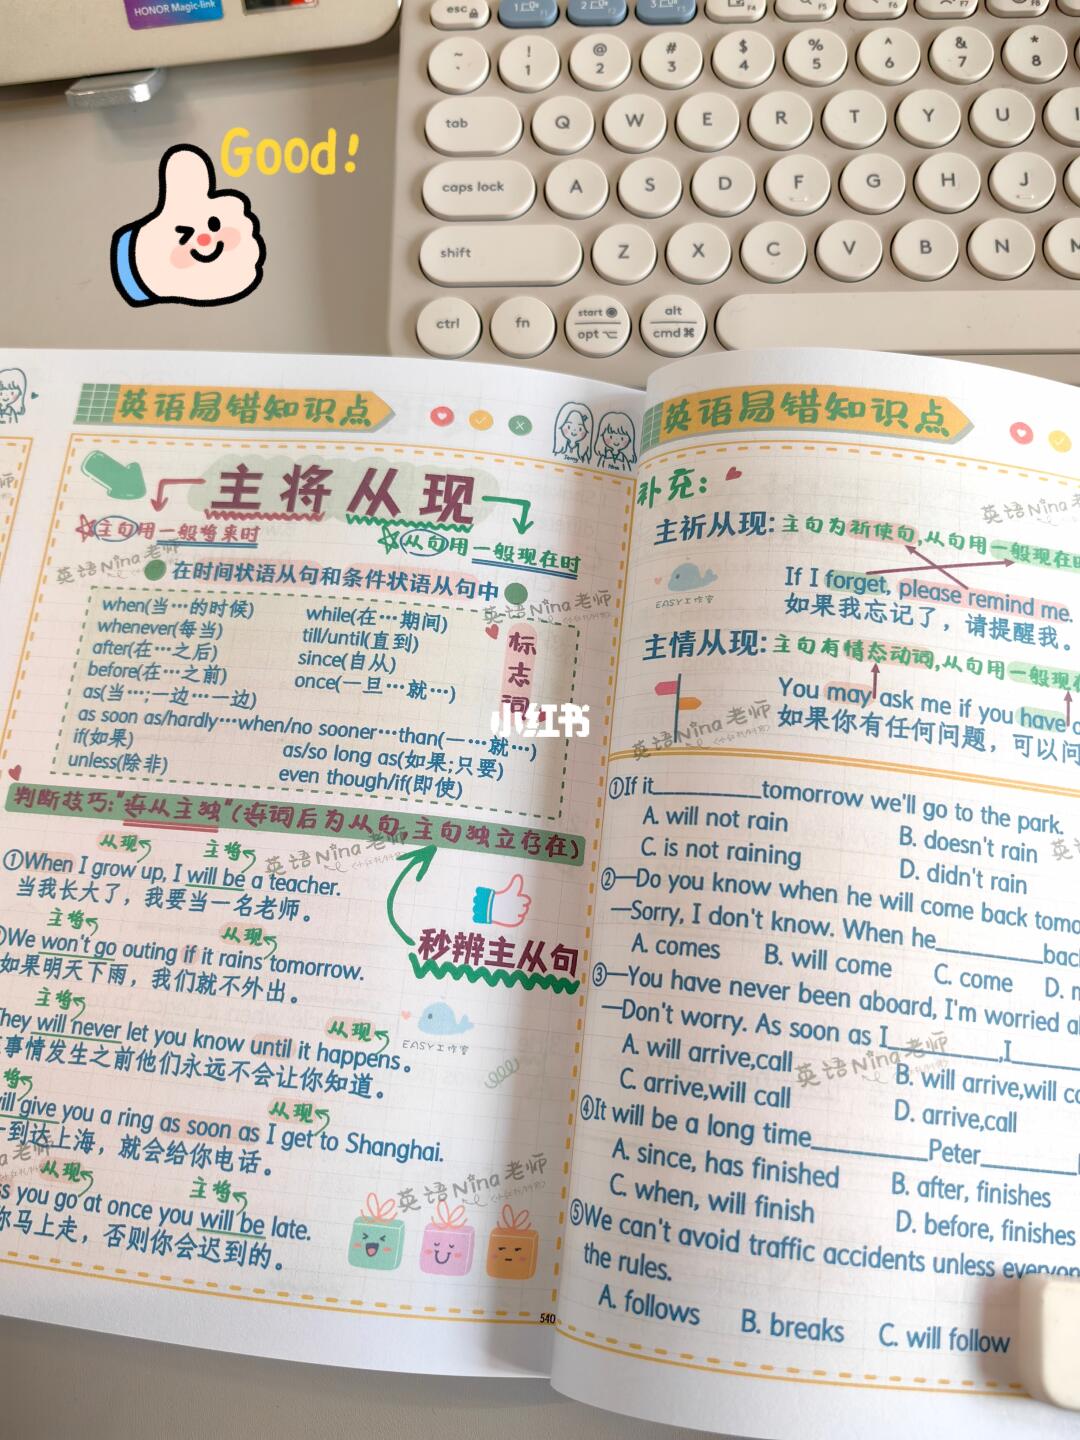 HONOR Magic-link
Good!
esc
~ ! @ # $ % ^ & *
` 1 2 3 4 5 6 7 8
tab Q W E R T Y U I
caps lock A S D F G H J
shift Z X C V B N M
ctrl fn start opt alt cmd
英语易错知识点
主将从现
主句用一般将来时
从句用一般现在时
在时间状语从句和条件状语从句中
when(当…的时候) while(在…期间)
whenever(每当) till/until(直到)
after(在…之后) since(自从)
before(在…之前) once(一旦…就…)
as(当…;一边…一边)
as soon as/hardly…when/no sooner…than(一…就…)
if(如果) as/so long as(如果;只要)
unless(除非) even though/if(即使)
标志词
小红书
判断技巧:"连从主独"(连词后为从句,主句独立存在)
从现 主将
①When I grow up, I will be a teacher.
当我长大了，我要当一名老师。
秒辨主从句
主将 从现
We won't go outing if it rains tomorrow.
如果明天下雨，我们就不外出。
主将 从现
They will never let you know until it happens。
事情发生之前他们永远不会让你知道。
从现
will give you a ring as soon as I get to Shanghai.
到达上海，就会给你电话。
从现 主将
you go at once you will be late.
马上走，否则你会迟到的。
EASY工作室
540
英语易错知识点
补充:
主祈从现:主句为祈使句,从句用一般现在时
If I forget, please remind me.
如果我忘记了，请提醒我。
EASY工作室
主情从现:主句有情态动词,从句用一般现在
You may ask me if you have
如果你有任何问题，可以问
①If it_________tomorrow we'll go to the park.
A. will not rain B. doesn't rain
C. is not raining D. didn't rain
②—Do you know when he will come back
—Sorry, I don't know. When he_________
A. comes B. will come C. come D.
③—You have never been aboard, I'm worried
—Don't worry. As soon as I_________,I______
A. will arrive,call B. will arrive,will
C. arrive,will call D. arrive,call
④It will be a long time_________Peter________
A. since, has finished B. after, finishes
C. when, will finish D. before, finishes
⑤We can't avoid traffic accidents unless
the rules.
A. follows B. breaks C. will follow
英语Nina老师
英语Nina老师
英语Nina老师
英语Nina老师
英语Nina老师
英语Nina老师